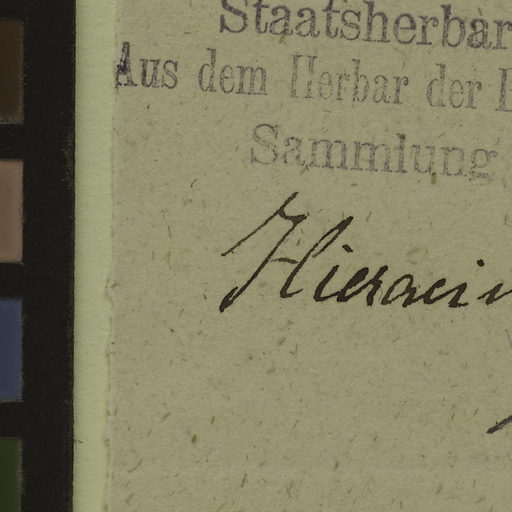 Staatsherbar
Aus dem Herbar der
Sammlung
Hieraci